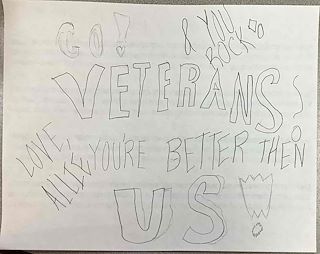 GO! & YOU ROCK
VETERANS
YOU'RE BETTER THEN
US!
LOVE,
ALLIE